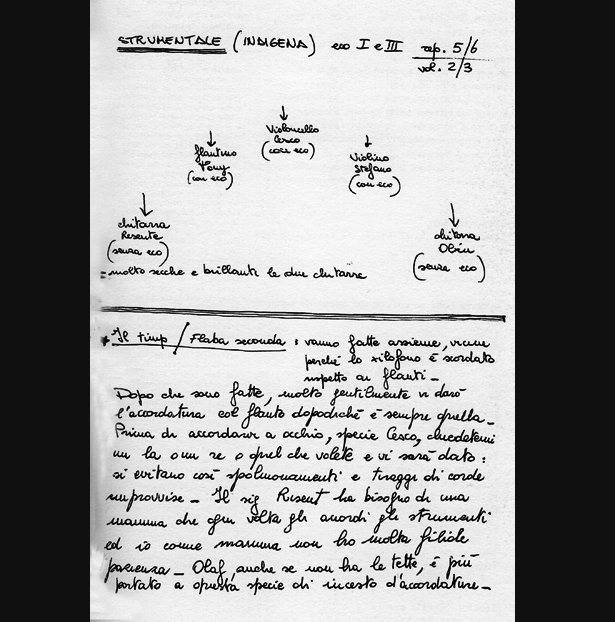 STRUMENTALE (INDIGENA) eco I e III rep. 5/6
vol. 2/3
Violoncello
Cesco
(con eco)
flautino
Tony
(con eco)
Violino
Stefano
(con eco)
chitarra
Resente
(senza eco)
chitarra
Olieu
(senza eco)
= molto secche e brillanti le due chitarre
Il timp / Flaba seconda : vanno fatte assieme, vicine
perché lo xilofono è scordato
rispetto ai flauti _
Dopo che sono fatte, molto gentilmente vi darò
l'accordatura col flauto dopodiché è sempre quella _
Prima di accordarvi a occhio, specie Cesco, chiedetemi
un la o un re o quel che volete e vi sarà dato :
si evitano così spolmonamenti e tiraggi di corde
improvvise _ Il sig. Resent ha bisogno di una
mamma che ogni volta gli accordi gli strumenti
ed io come mamma non ho molta filiale
pazienza _ Olaf, anche se non ha le tette, è più
portato a questa specie di incesto d'accordature _